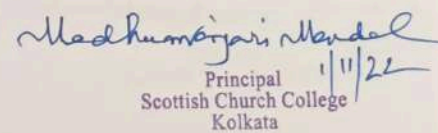 Madhumanjari Mandal
1/11/22
Principal
Scottish Church College
Kolkata